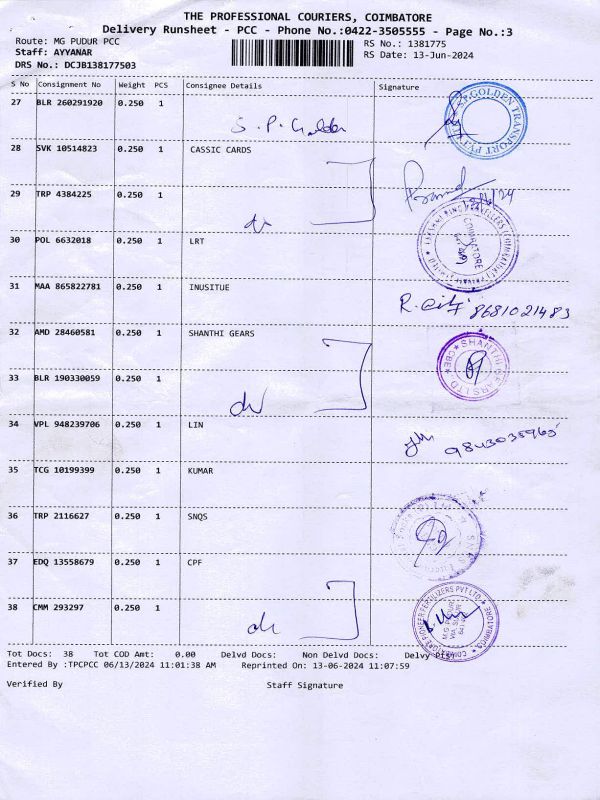 THE PROFESSIONAL COURIERS, COIMBATORE
Delivery Runsheet - PCC - Phone No.:0422-3505555 - Page No.:3
Route: MG PUDUR PCC
RS No.: 1381775
Staff: AYYANAR
RS Date: 13-Jun-2024
DRS No.: DCJB138177503
S No Consignment No Weight PCS Consignee Details Signature
27 BLR 260291920 0.250 1
S. P. Golden
28 SVK 10514823 0.250 1 CASSIC CARDS
29 TRP 4384225 0.250 1
30 POL 6632018 0.250 1 LRT
COIMBATORE
31 MAA 865822781 0.250 1 INUSITUE
8681021483
32 AMD 28460581 0.250 1 SHANTHI GEARS
SHANTHI GEARS LTD
CBE
33 BLR 190330059 0.250 1
34 VPL 948239706 0.250 1 LIN
35 TCG 10199399 0.250 1 KUMAR
36 TRP 2116627 0.250 1 SNQS
37 EDQ 13558679 0.250 1 CPF
38 CMM 293297 0.250 1
Tot Docs: 38 Tot COD Amt: 0.00 Delvd Docs: Non Delvd Docs: Delvy
Entered By :TPCPCC 06/13/2024 11:01:38 AM Reprinted On: 13-06-2024 11:07:59
Verified By Staff Signature